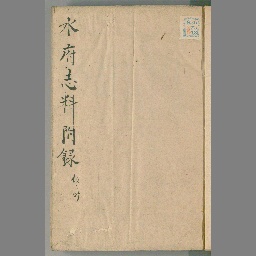 水府志料附録